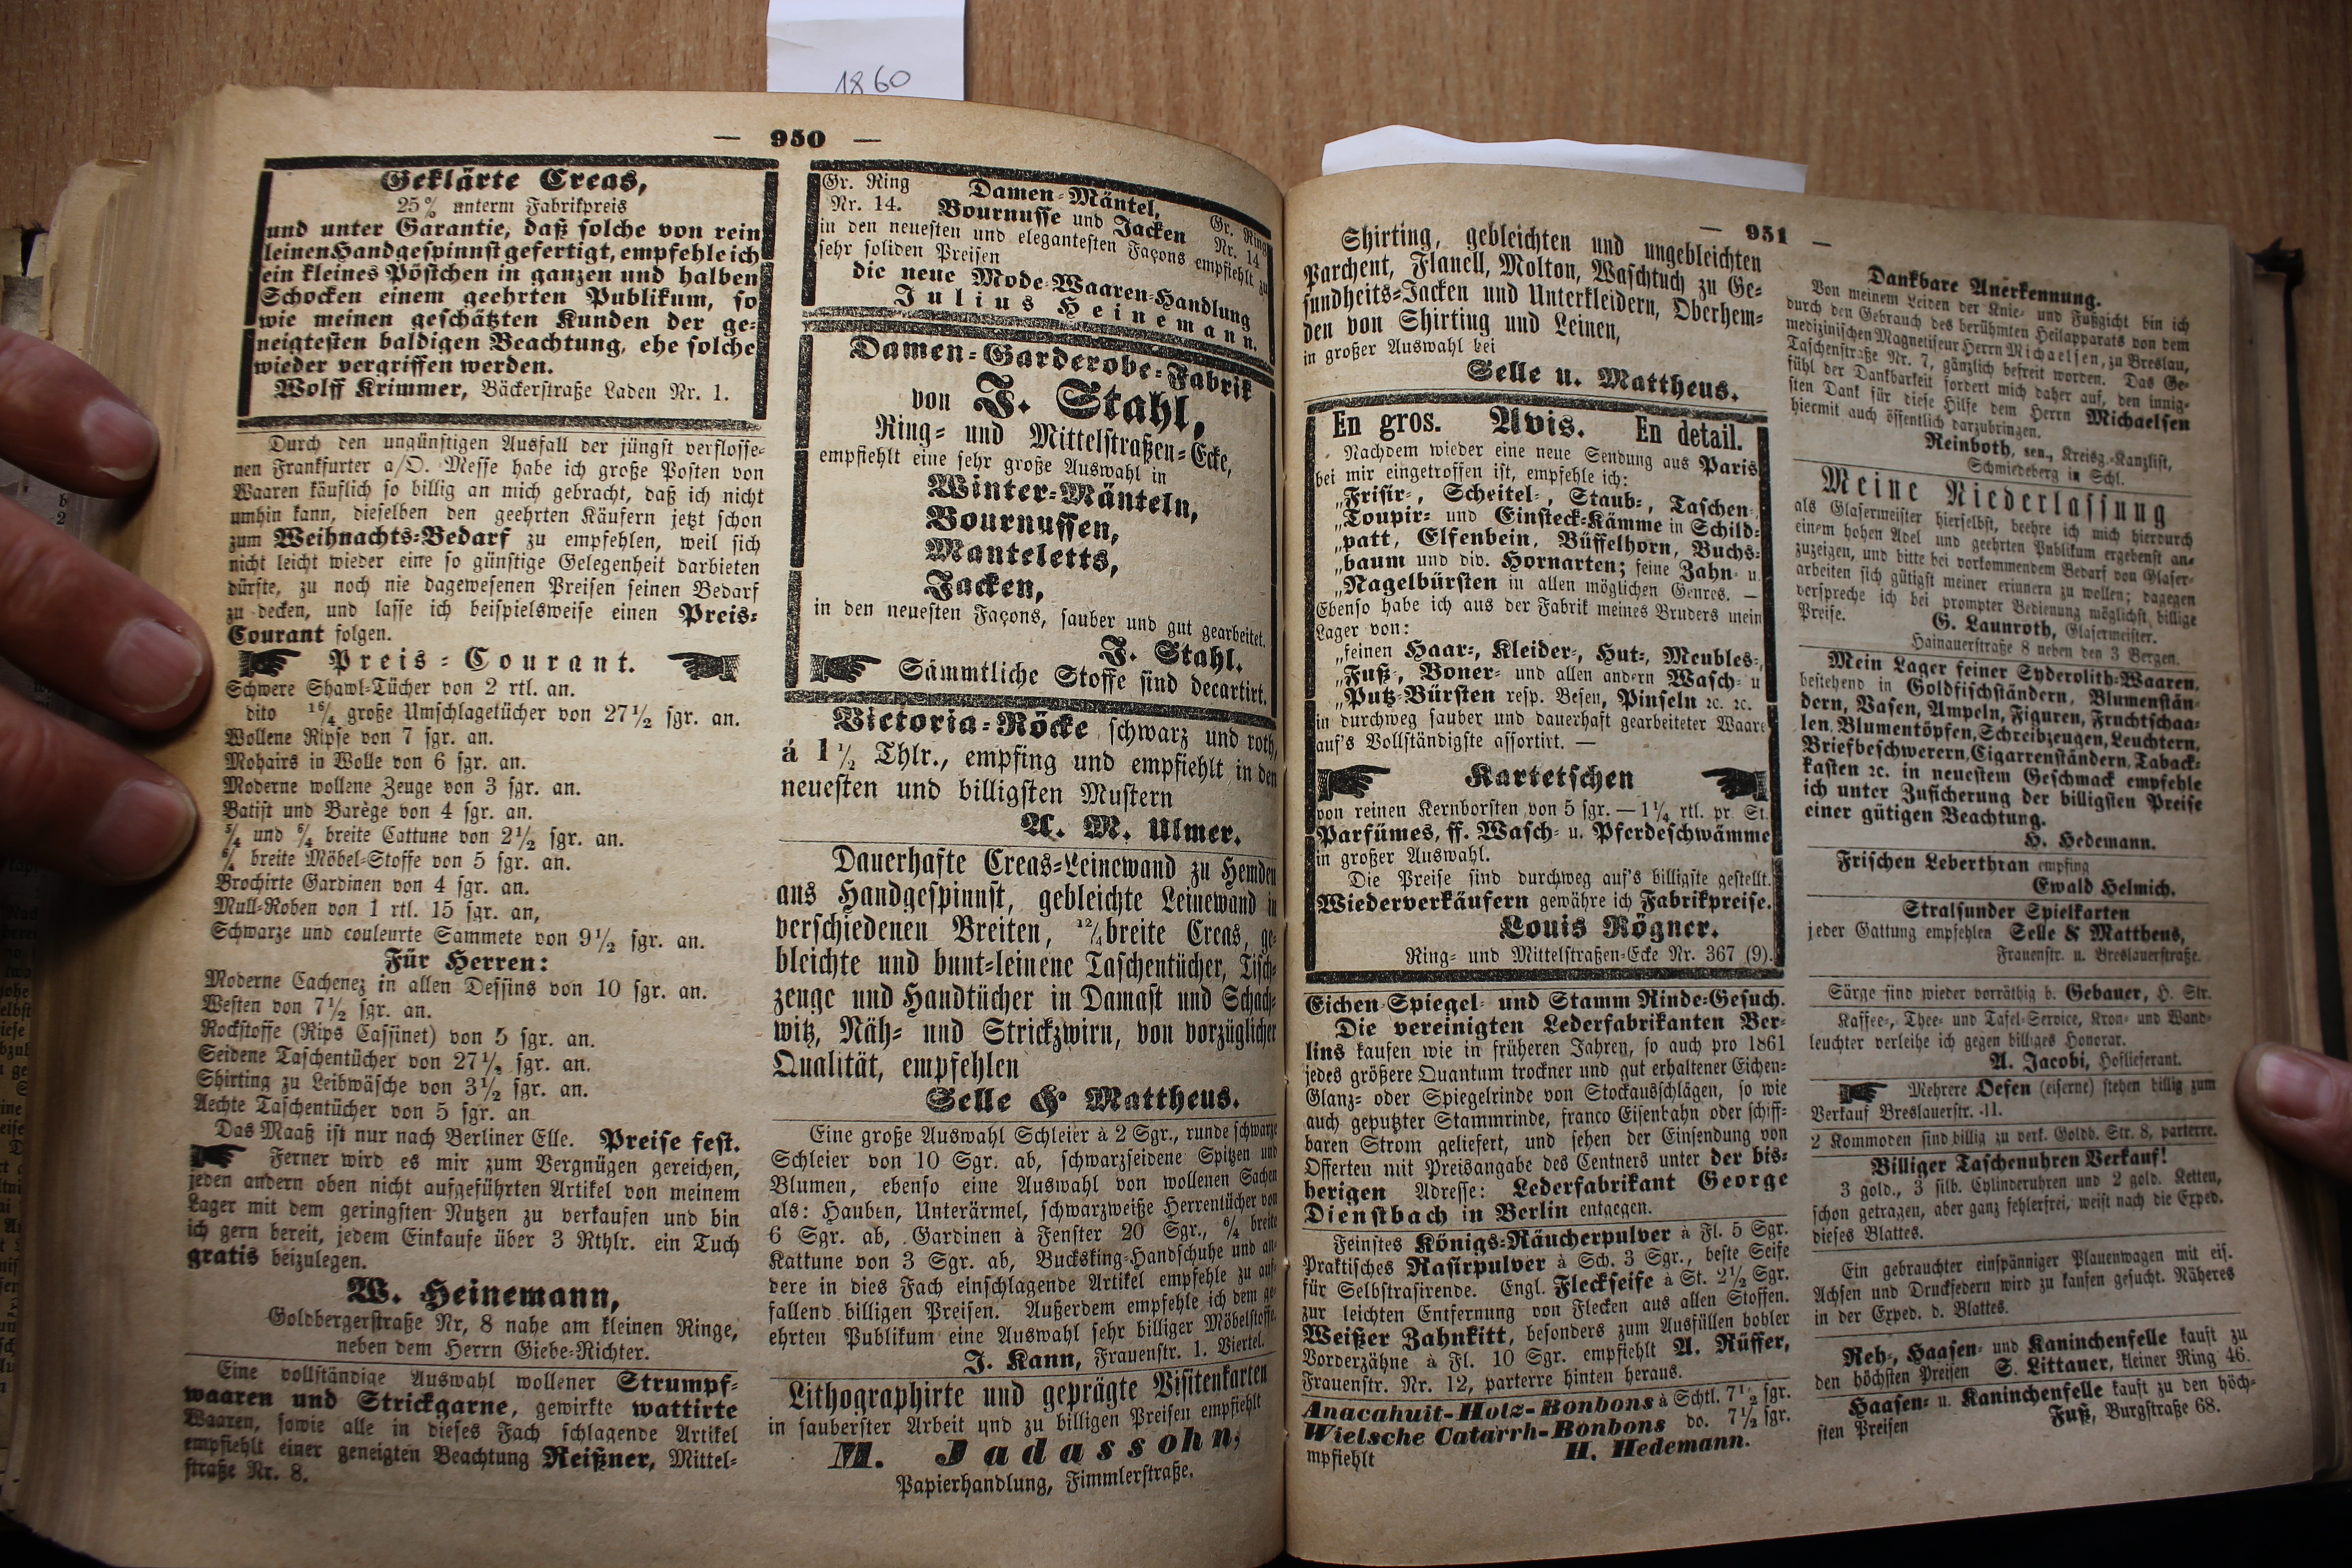 1860
— 950 —
Geklärte Creas,
25% unterm Fabrikpreis
und unter Garantie, daß solche von rein
leinen Handgespinnst gefertigt, empfehle ich
ein kleines Pöstchen in ganzen und halben
Schocken einem geehrten Publikum, so
wie meinen geschätzten Kunden der ge-
neigtesten baldigen Beachtung, ehe solche
wieder vergriffen werden.
Wolff Krimmer, Bäckerstraße Laden Nr. 1.
Durch den ungünstigen Ausfall der jüngst verflosse-
nen Frankfurter a/O. Messe habe ich große Posten von
Waaren käuflich so billig an mich gebracht, daß ich nicht
umhin kann, dieselben den geehrten Käufern jetzt schon
zum Weihnachts-Bedarf zu empfehlen, weil sich
nicht leicht wieder eine so günstige Gelegenheit darbieten
dürfte, zu noch nie dagewesenen Preisen seinen Bedarf
zu decken, und lasse ich beispielsweise einen Preis-
Courant folgen.
Preis-Courant.
Schwere Shawl-Tücher von 2 rtl. an.
dito 16/4 große Umschlagetücher von 27½ sgr. an.
Wollene Ripse von 7 sgr. an.
Mohairs in Wolle von 6 sgr. an.
Moderne wollene Zeuge von 3 sgr. an.
Batist und Barège von 4 sgr. an.
5/4 und 6/4 breite Cattune von 2½ sgr. an.
6/4 breite Möbel-Stoffe von 5 sgr. an.
Brochirte Gardinen von 4 sgr. an.
Mull-Roben von 1 rtl. 15 sgr. an,
Schwarze und couleurte Sammete von 9½ sgr. an.
Für Herren:
Moderne Cachenez in allen Dessins von 10 sgr. an.
Westen von 7½ sgr. an.
Rockstoffe (Rips Cassinet) von 5 sgr. an.
Seidene Taschentücher von 27½ sgr. an.
Shirting zu Leibwäsche von 3½ sgr. an.
Aechte Taschentücher von 5 sgr. an
Das Maaß ist nur nach Berliner Elle. Preise fest.
Ferner wird es mir zum Vergnügen gereichen,
jeden andern oben nicht aufgeführten Artikel von meinem
Lager mit dem geringsten Nutzen zu verkaufen und bin
ich gern bereit, jedem Einkaufe über 3 Rthlr. ein Tuch
gratis beizulegen.
W. Heinemann,
Goldbergerstraße Nr, 8 nahe am kleinen Ringe,
neben dem Herrn Giebe-Richter.
Eine vollständige Auswahl wollener Strumpf-
waaren und Strickgarne, gewirkte wattirte
Waaren, sowie alle in dieses Fach schlagende Artikel
empfiehlt einer geneigten Beachtung Reißner, Mittel-
straße Nr. 8.
Gr. Ring Nr. 14. Damen-Mäntel, Gr. Ring Nr. 14
Bournusse und Jacken
in den neuesten und elegantesten Façons empfiehlt zu
sehr soliden Preisen
die neue Mode-Waaren-Handlung
Julius Heinemann.
Damen-Garderobe-Fabrik
von J. Stahl,
Ring- und Mittelstraßen-Ecke,
empfiehlt eine sehr große Auswahl in
Winter-Mänteln,
Bournussen,
Manteletts,
Jacken,
in den neuesten Façons, sauber und gut gearbeitet.
J. Stahl.
Sämmtliche Stoffe sind decartirt.
Victoria-Röcke schwarz und roth,
á 1½ Thlr., empfing und empfiehlt in den
neuesten und billigsten Mustern
A. M. Ulmer.
Dauerhafte Creas-Leinewand zu Hemden
aus Handgespinnst, gebleichte Leinewand in
verschiedenen Breiten, 12/4 breite Creas, ge-
bleichte und bunt-leinene Taschentücher, Tisch-
zeuge und Handtücher in Damast und Schach-
witz, Näh- und Strickzwirn, von vorzüglicher
Qualität, empfehlen
Selle & Mattheus.
Eine große Auswahl Schleier à 2 Sgr., runde schwarze
Schleier von 10 Sgr. ab, schwarzseidene Spitzen und
Blumen, ebenso eine Auswahl von wollenen Sachen
als: Hauben, Unterärmel, schwarzweiße Herrentücher von
6 Sgr. ab, Gardinen à Fenster 20 Sgr., 6/4 breite
Kattune von 3 Sgr. ab, Bucksking-Handschuhe und an-
dere in dies Fach einschlagende Artikel empfehle zu auf-
fallend billigen Preisen. Außerdem empfehle ich dem ge-
ehrten Publikum eine Auswahl sehr billiger Möbelstoffe.
J. Kann, Frauenstr. 1. Viertel.
Lithographirte und geprägte Visitenkarten
in sauberster Arbeit und zu billigen Preisen empfiehlt
M. Jadassohn,
Papierhandlung, Fimmlerstraße.
— 951 —
Shirting, gebleichten und ungebleichten
Parchent, Flanell, Molton, Waschtuch zu Ge-
sundheits-Jacken und Unterkleidern, Oberhem-
den von Shirting und Leinen,
in großer Auswahl bei
Selle u. Mattheus.
En gros. Avis. En detail.
Nachdem wieder eine neue Sendung aus Paris
bei mir eingetroffen ist, empfehle ich:
„Frisir-, Scheitel-, Staub-, Taschen-
„Toupir- und Einsteck-Kämme in Schild-
„patt, Elfenbein, Büffelhorn, Buchs-
„baum und div. Hornarten; feine Zahn- u.
„Nagelbürsten in allen möglichen Genres. —
Ebenso habe ich aus der Fabrik meines Bruders mein
Lager von:
„feinen Haar-, Kleider-, Hut-, Meubles-,
„Fuß-, Boner- und allen andern Wasch- u
„Putz-Bürsten resp. Besen, Pinseln ꝛc. ꝛc.
in durchweg sauber und dauerhaft gearbeiteter Waare
auf's Vollständigste assortirt. —
Kartetschen
von reinen Kernborsten von 5 sgr. — 1¼ rtl. pr. St.
Parfümes, ff. Wasch- u. Pferdeschwämme
in großer Auswahl.
Die Preise sind durchweg auf's billigste gestellt.
Wiederverkäufern gewähre ich Fabrikpreise.
Louis Rögner.
Ring- und Mittelstraßen-Ecke Nr. 367 (9).
Eichen-Spiegel- und Stamm Rinde-Gesuch.
Die vereinigten Lederfabrikanten Ber-
lins kaufen wie in früheren Jahren, so auch pro 1861
jedes größere Quantum trockner und gut erhaltener Eichen-
Glanz- oder Spiegelrinde von Stockausschlägen, so wie
auch geputzter Stammrinde, franco Eisenbahn oder schiff-
baren Strom geliefert, und sehen der Einsendung von
Offerten mit Preisangabe des Centners unter der bis-
herigen Adresse: Lederfabrikant George
Dienstbach in Berlin entgegen.
Feinstes Königs-Räucherpulver à Fl. 5 Sgr.
Praktisches Rasirpulver à Sch. 3 Sgr., beste Seife
für Selbstrasirende. Engl. Fleckseife à St. 2½ Sgr.
zur leichten Entfernung von Flecken aus allen Stoffen.
Weißer Zahnkitt, besonders zum Ausfüllen hohler
Vorderzähne à Fl. 10 Sgr. empfiehlt A. Rüffer,
Frauenstr. Nr. 12, parterre hinten heraus.
Anacahuit-Holz-Bonbons à Schtl. 7½ sgr.
Wielsche Catarrh-Bonbons do. 7½ sgr.
mpfiehlt H. Hedemann.
Dankbare Anerkennung.
Von meinem Leiden der Knie- und Fußgicht bin ich
durch den Gebrauch des berühmten Heilapparats von dem
medizinischen Magnetiseur Herrn Michaelsen, zu Breslau,
Taschenstraße Nr. 7, gänzlich befreit worden. Das Ge-
fühl der Dankbarkeit fordert mich daher auf, den innig-
sten Dank für diese Hilfe dem Herrn Michaelsen
hiermit auch öffentlich darzubringen.
Reinboth, sen., Kreisg.-Kanzlist,
Schmiedeberg in Schl.
Meine Niederlassung
als Glasermeister hierselbst, beehre ich mich hierdurch
einem hohen Adel und geehrten Publikum ergebenst an-
zuzeigen, und bitte bei vorkommendem Bedarf von Glaser-
arbeiten sich gütigst meiner erinnern zu wollen; dagegen
verspreche ich bei prompter Bedienung möglichst billige
Preise.
G. Launroth, Glasermeister.
Hainauerstraße 8 neben den 3 Bergen.
Mein Lager feiner Syderolith-Waaren,
bestehend in Goldfischständern, Blumenstän-
dern, Vasen, Ampeln, Figuren, Fruchtschaa-
len, Blumentöpfen, Schreibzeugen, Leuchtern,
Briefbeschwerern, Cigarrenständern, Taback-
kasten ꝛc. in neuestem Geschmack empfehle
ich unter Zusicherung der billigsten Preise
einer gütigen Beachtung.
H. Hedemann.
Frischen Leberthran empfing
Ewald Helmich.
Stralsunder Spielkarten
jeder Gattung empfehlen Selle & Mattheus,
Frauenstr. u. Breslauerstraße.
Särge sind wieder vorräthig b. Gebauer, H. Str.
Kaffee-, Thee- und Tafel-Service, Kron- und Wand-
leuchter verleihe ich gegen billiges Honorar.
A. Jacobi, Hoflieferant.
Mehrere Oefen (eiserne) stehen billig zum
Verkauf Breslauerstr. 11.
2 Kommoden sind billig zu verk. Goldb. Str. 8, parterre.
Billiger Taschenuhren Verkauf!
3 gold., 3 silb. Cylinderuhren und 2 gold. Ketten,
schon getragen, aber ganz fehlerfrei, weist nach die Exped.
dieses Blattes.
Ein gebrauchter einspänniger Plauenwagen mit eis.
Achsen und Druckfedern wird zu kaufen gesucht. Näheres
in der Exped. d. Blattes.
Reh-, Haasen- und Kaninchenfelle kauft zu
den höchsten Preisen S. Littauer, kleiner Ring 46.
Haasen- u. Kaninchenfelle kauft zu den höch-
sten Preisen Fuß, Burgstraße 68.